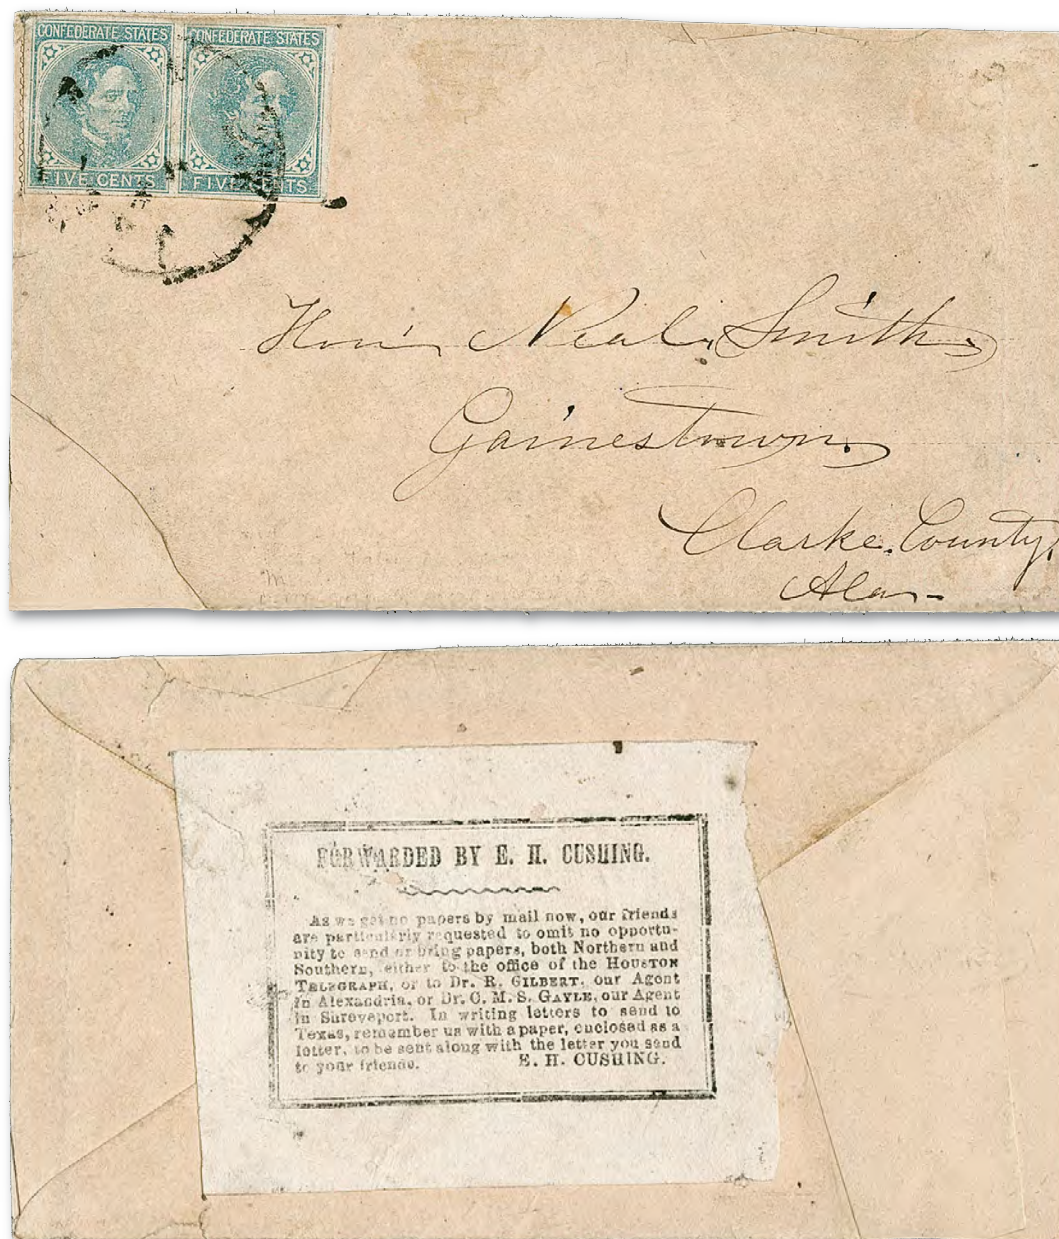 CONFEDERATE STATES CONFEDERATE STATES
FIVE CENTS FIVE CENTS
Hon: Neal. Smith
Gainestown.
Clarke. County,
Ala-
FORWARDED BY E. H. CUSHING.
As we get no papers by mail now, our friends
are particularly requested to omit no opportu-
nity to send or bring papers, both Northern and
Southern, either to the office of the HOUSTON
TELEGRAPH, or to Dr. R. GILBERT, our Agent
in Alexandria, or Dr. C. M. S. GAYLE, our Agent
in Shreveport. In writing letters to send to
Texas, remember us with a paper, enclosed as a
letter, to be sent along with the letter you send
to your friends. E. H. CUSHING.